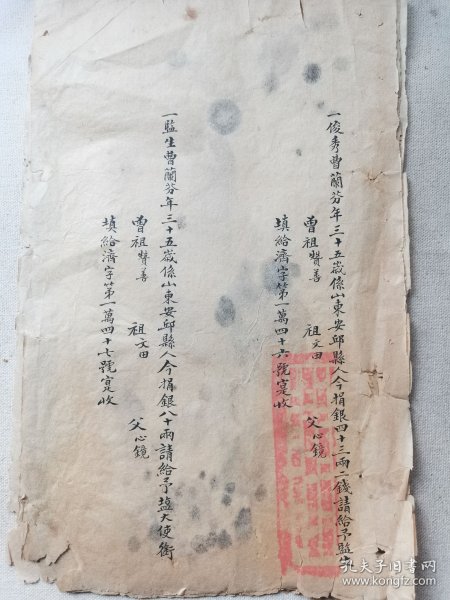 一俊秀曹蘭芬年三十五歲係山東安邱縣人今捐銀四十三兩二錢請給予監生
曾祖贊善 祖文田 父心鏡
填給濟字第一萬四十六號寔收
一監生曹蘭芬年三十五歲係山東安邱縣人今捐銀八十兩請給予鹽大使銜
曾祖贊善 祖文田 父心鏡
填給濟字第一萬四十七號寔收
孔夫子旧书网
www.kongfz.com